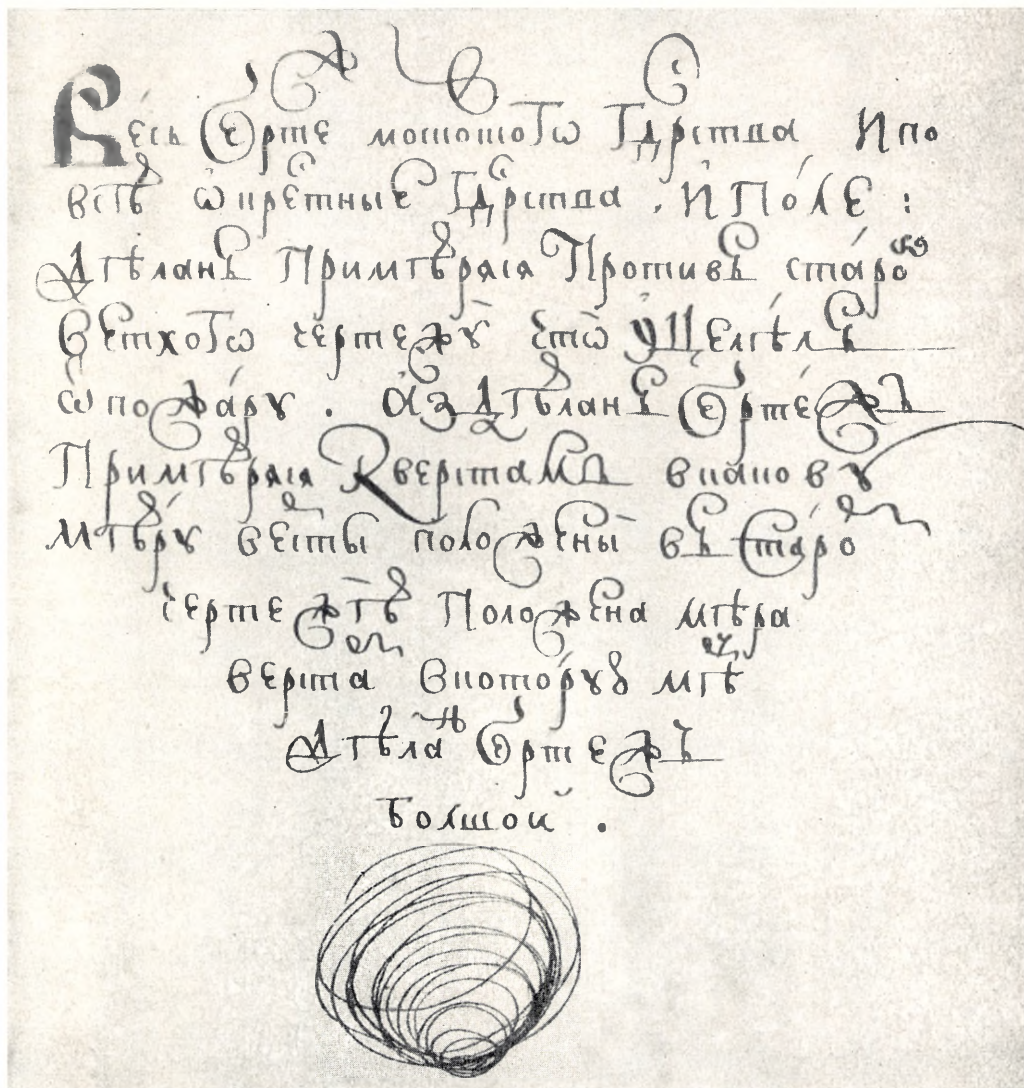 Весь чертеⷤ московⷭкогѡ гдⷭрства И по
всѣ ѡкрестные гдⷭрства . И Поле :
здѣланъ Примѣряся Противъ старого
ветхогѡ чертежꙋ что уцелѣлъ
ѿ пожарꙋ . А здѣланъ чертежъ
Примѣряся К верстамъ
мѣрꙋ версты положены въ старо
чертежѣ Положена мѣра
верста в которꙋю мѣ
здѣлаⷩ чертежъ
болшои .